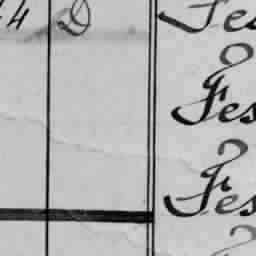 14 D Fes
Fes
Fes